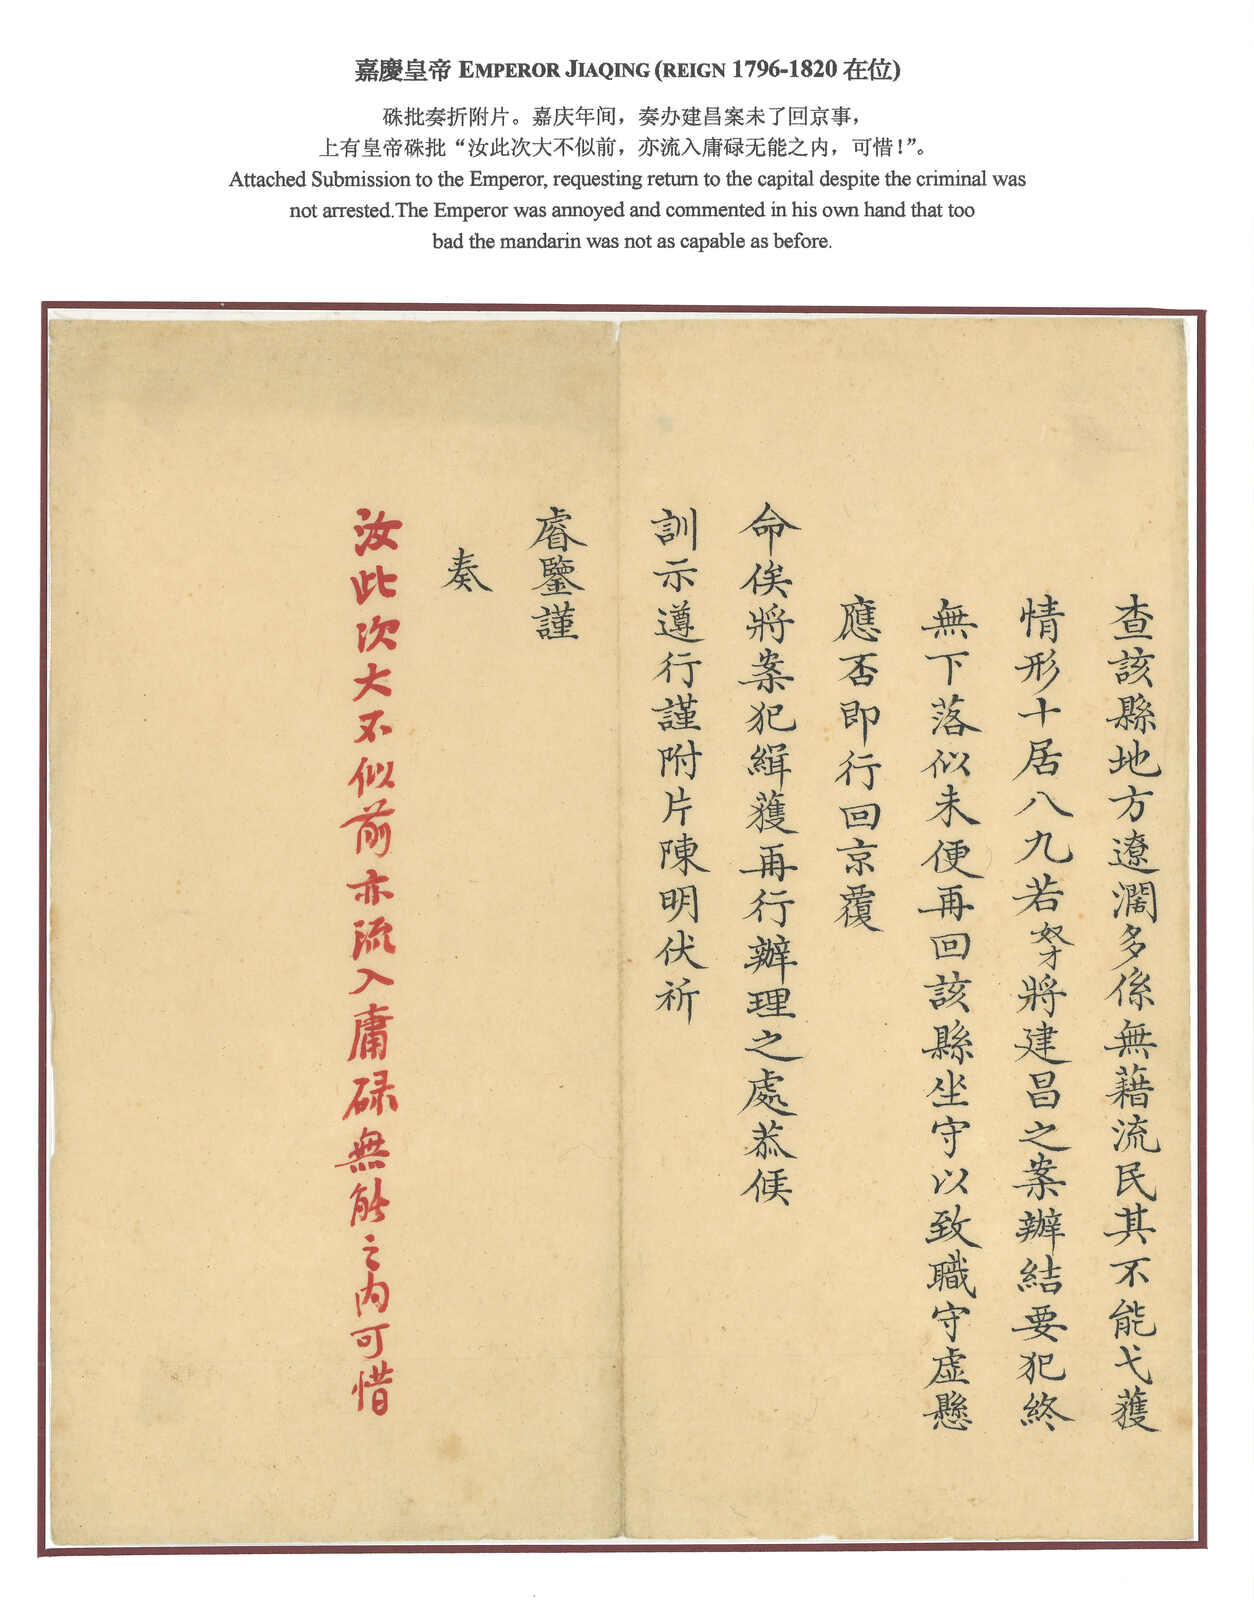 嘉慶皇帝 EMPEROR JIAQING (REIGN 1796-1820 在位)
硃批奏折附片。嘉庆年间，奏办建昌案未了回京事，
上有皇帝硃批“汝此次大不似前，亦流入庸碌无能之内，可惜！”。
Attached Submission to the Emperor, requesting return to the capital despite the criminal was
not arrested.The Emperor was annoyed and commented in his own hand that too
bad the mandarin was not as capable as before.
查該縣地方遼濶多係無藉流民其不能弋獲
情形十居八九若奴才將建昌之案辦結要犯終
無下落似未便再回該縣坐守以致職守虛懸
應否即行回京覆
命俟將案犯緝獲再行辦理之處恭候
訓示遵行謹附片陳明伏祈
睿鑒謹
奏
汝此次大不似前亦流入庸碌無能之內可惜